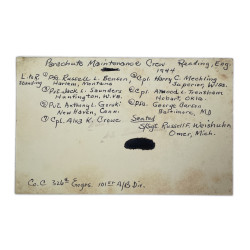 Parachute Maintenance Crew Reading, Eng.
1944
L. to R.
Standing
① Pfc Russell L. Benson,
Harlem, Montana
② Pvt Jack L. Saunders
Huntington, W.Va.
③ Pvt. Anthony L. Gorski
New Haven, Conn.
④ Cpl. Alex R. Crowe
⑤ Cpl. Harry C. Mechling
Superior, Wis.
⑥ Cpl. Arwood L.
Hobart, Okla.
⑦ Pvt. George Larson
Baltimore, Md
Seated
S/Sgt Russell F. Weishuhn
Omer, Mich.
Co. C 326th Engrs 101st A/B Div.